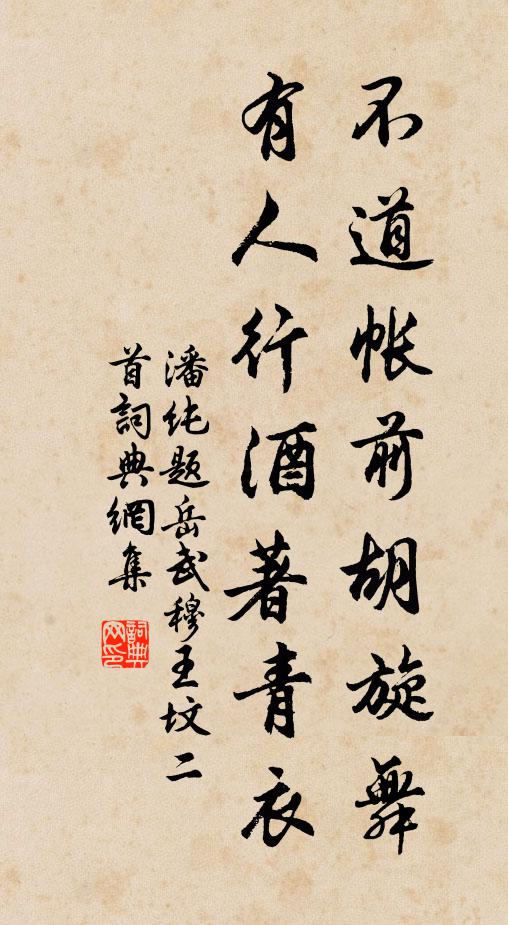 不道帐前胡旋舞
有人行酒著青衣
潘纯题岳武穆王坟二
首詞典網集
詞典
网印